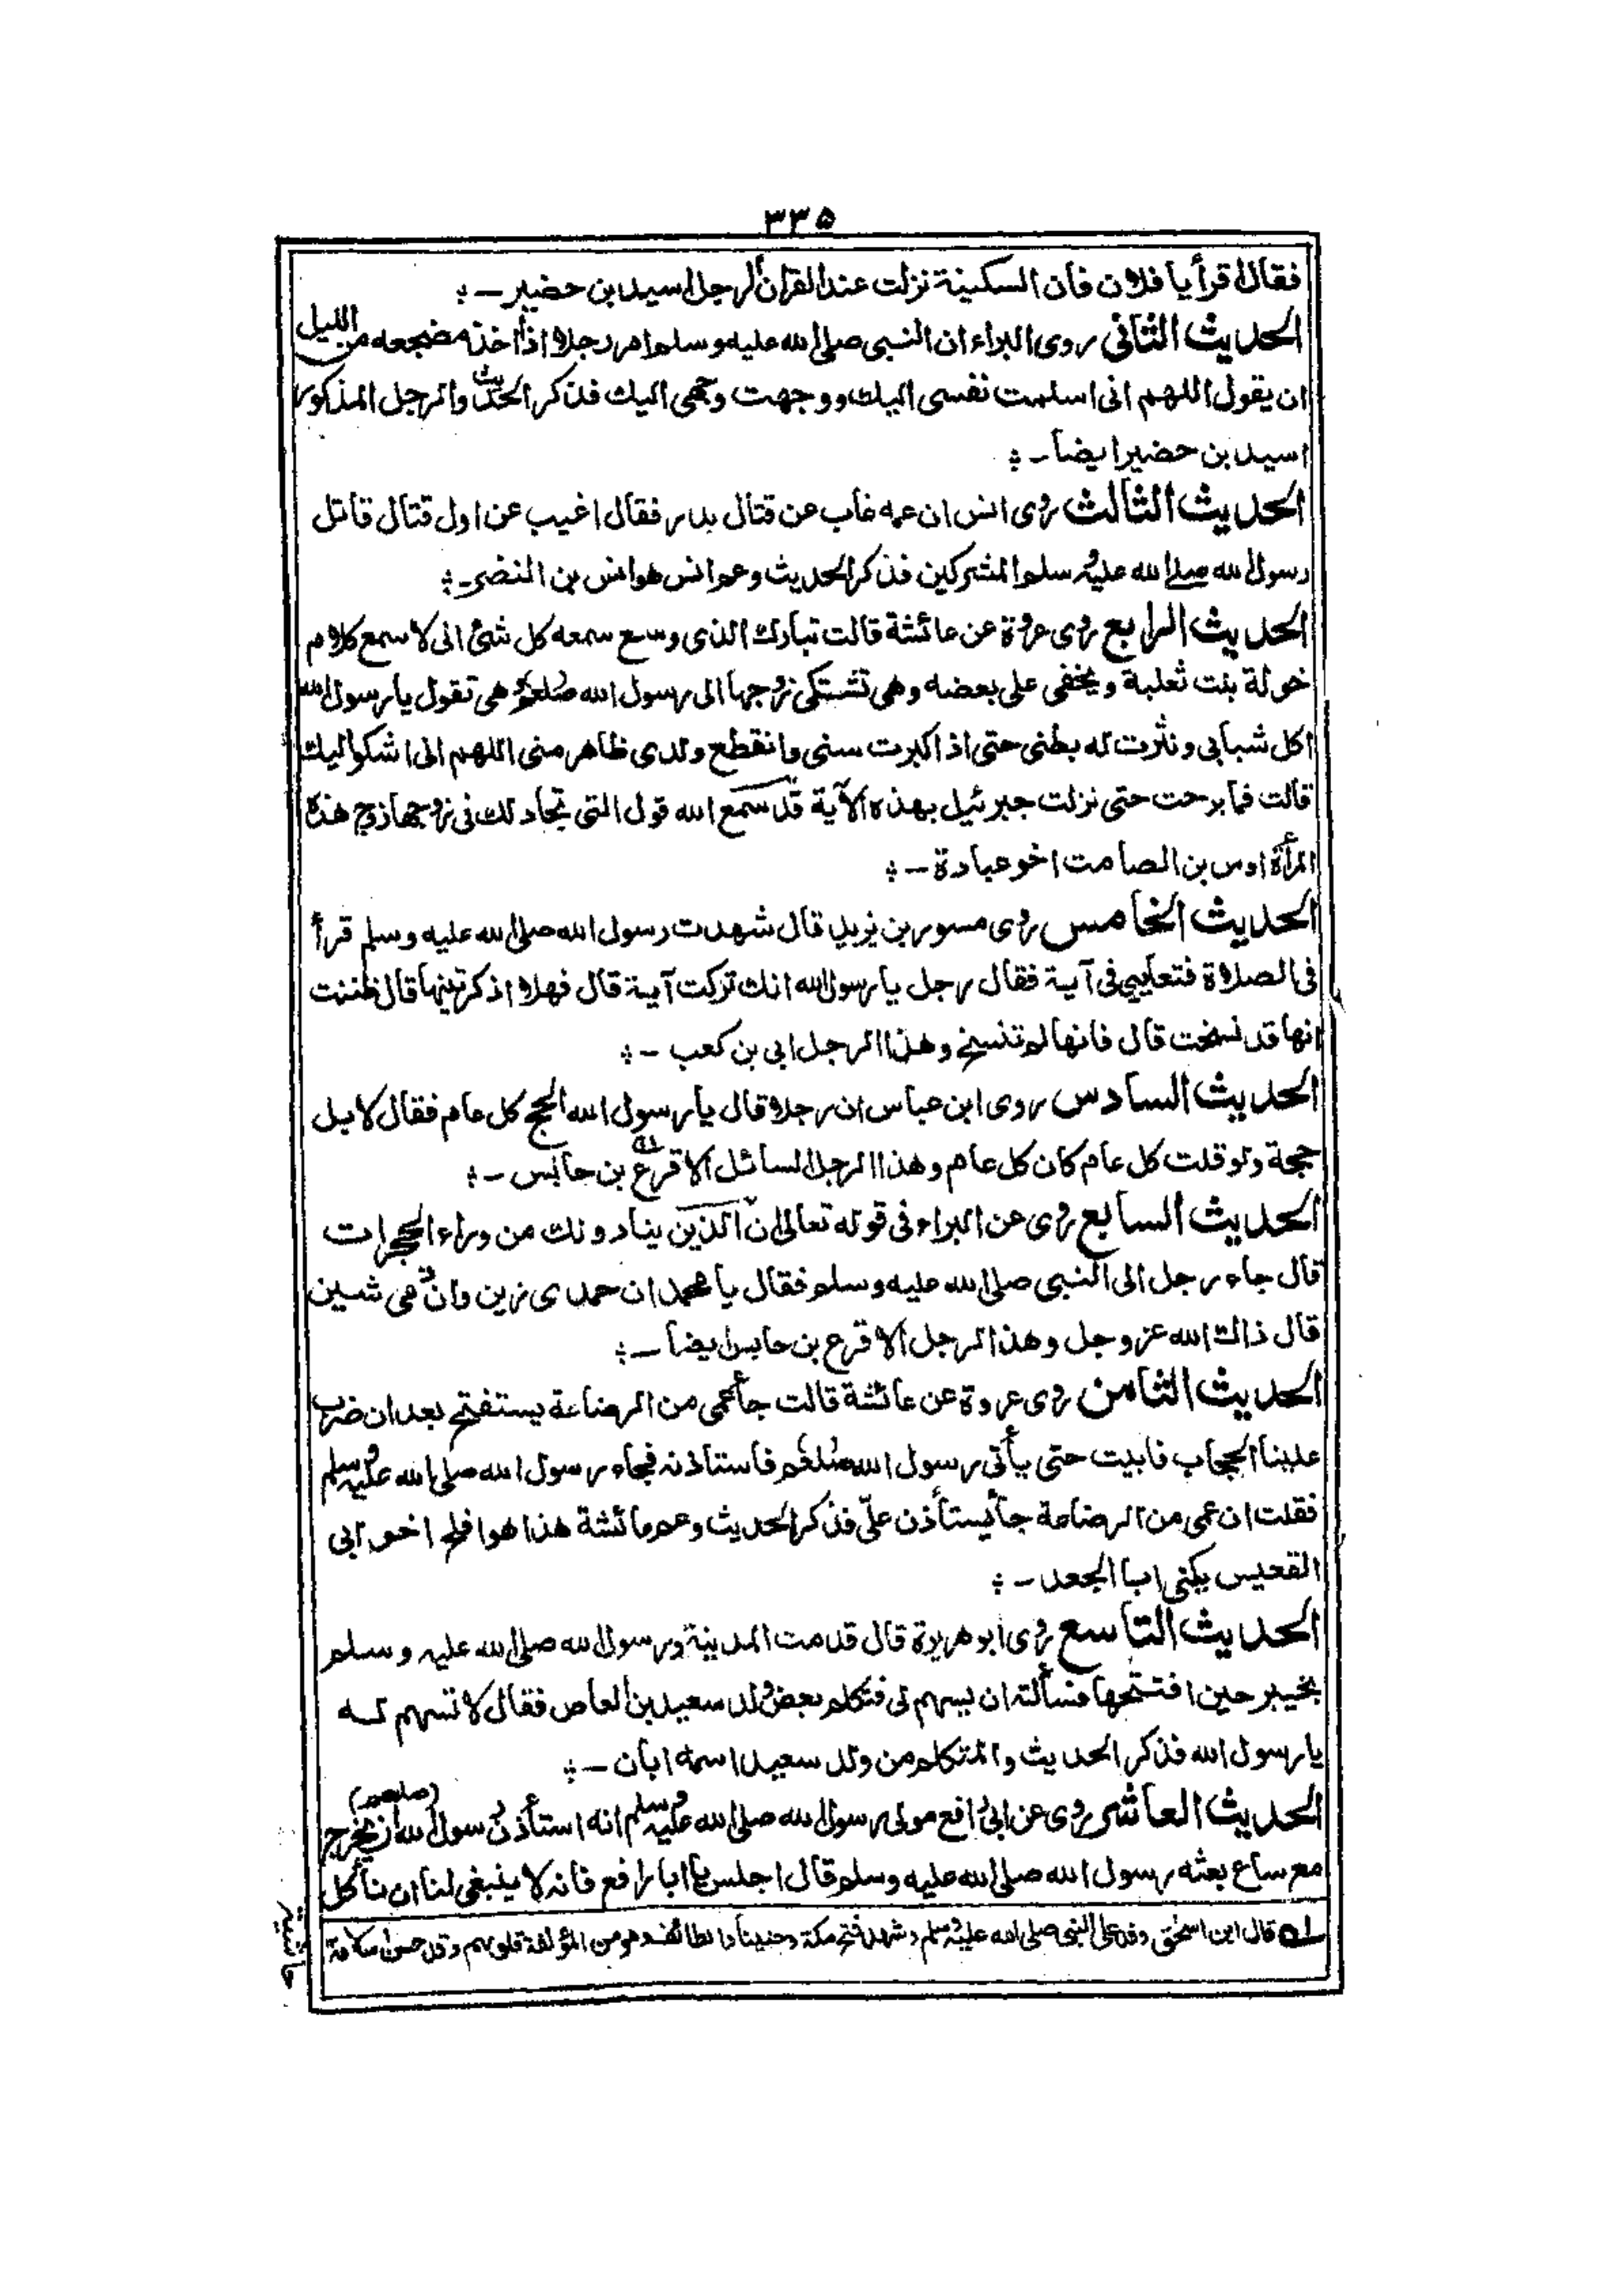 ٣٣٥
فقال اقرأ يا فلان فان السكينة نزلت عند القران الرجل اسيد بن حضير ــ
الحديث الثانی روی البراء ان النبی صلی الله عليه وسلم امر رجلا اذا اخذ مضجعه من الليل
ان يقول اللهم انی اسلمت نفسی اليك ووجهت وجهی اليك فذكر الحديث والرجل المذكور
اسيد بن حضير ايضا ــ
الحديث الثالث روی انس ان عمه غاب عن قتال بدر فقال اغيب عن اول قتال قاتل
رسول الله صلی الله عليه وسلم المشركين فذكر الحديث وعم انس هو انس بن النضر ــ
الحديث الرابع روی عروة عن عائشة قالت تبارك الذی وسع سمعه كل شئ انی لاسمع كلام
خولة بنت ثعلبة ويخفی علی بعضه وهی تشتكی زوجها الی رسول الله صلعم وهی تقول يا رسول الله
اكل شبابی ونثرت له بطنی حتی اذا كبرت سنی وانقطع ولدی ظاهر منی اللهم انی اشكو اليك
قالت فما برحت حتی نزلت جبرئيل بهذه الآية قد سمع الله قول التی تجادلك فی زوجها زوج هذه
المرأة اوس بن الصامت اخو عبادة ــ
الحديث الخامس روی مسور بن يزيد قال شهدت رسول الله صلی الله عليه وسلم قرأ
فی الصلاة فتعايی فی آية فقال رجل يا رسول الله انك تركت آية قال فهلا اذكرتنيها قال ظننت
انها قد نسخت قال فانها لم تنسخ وهذا الرجل ابی بن كعب ــ
الحديث السادس روی ابن عباس ان رجلا قال يا رسول الله الحج كل عام فقال لا بل
حجة ولو قلت كل عام كان كل عام وهذا الرجل السائل الاقرع بن حابس ــ
الحديث السابع روی عن البراء فی قوله تعالی ان الذين ينادونك من وراء الحجرات
قال جاء رجل الی النبی صلی الله عليه وسلم فقال يا محمد ان حمدی زين وان ذمی شين
قال ذالك الله عز وجل وهذا الرجل الاقرع بن حابس ايضا ــ
الحديث الثامن روی عروة عن عائشة قالت جاء عمی من الرضاعة يستفتح بعد ان ضرب
علينا الحجاب فابيت حتی يأتی رسول الله صلعم فاستاذنه فجاء رسول الله صلی الله عليه وسلم
فقلت ان عمی من الرضاعة جاء يستأذن علیّ فذكر الحديث وعم عائشة هذا هو افلح اخو ابی
القعيس يكنی ابا الجعد ــ
الحديث التاسع روی ابو هريرة قال قدمت المدينة ورسول الله صلی الله عليه وسلم
بخيبر حين افتتحها فسألته ان يسهم لی فتكلم بعض ولد سعيد بن العاص فقال لا تسهم له
يا رسول الله فذكر الحديث والمتكلم من ولد سعيد اسمه ابان ــ
الحديث العاشر روی عن ابی رافع مولی رسول الله صلی الله عليه وسلم انه استأذن رسول الله (صلعم) ان يخرج
مع ساع بعثه رسول الله صلی الله عليه وسلم قال اجلس يا ابا رافع فانه لا ينبغی لنا ان نأكل
له قال ابن اسحق وفد علی النبی صلی الله عليه وسلم وشهد فتح مكة وحنينا والطائف وهو من المؤلفة قلوبهم وقد حسن اسلامه
حاشية